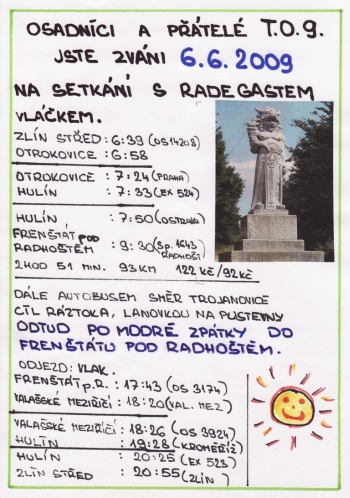 OSADNÍCI A PŘÁTELÉ T.O.9.
JSTE ZVÁNI 6.6.2009
NA SETKÁNÍ S RADEGASTEM
VLÁČKEM.
ZLÍN STŘED : 6:39 (OS 14208)
OTROKOVICE : 6:58
OTROKOVICE : 7:24 (PRAHA)
HULÍN : 7:33 (EX 524)
HULÍN : 7:50 (OSTRAVA)
FRENŠTÁT POD
RADHOŠTĚM : 9:30 (Sp. 1643 RADHOŠŤ)
2HOD 51 MIN. 93KM 122 Kč/92Kč
DÁLE AUTOBUSEM SMĚR TROJANOVICE
CTL RÁZTOKA, LANOVKOU NA PUSTEVNY
ODTUD PO MODRÉ ZPÁTKY DO
FRENŠTÁTU POD RADHOŠTĚM.
ODJEZD: VLAK.
FRENŠTÁT p.R. : 17:43 (OS 3174)
VALAŠSKÉ MEZIŘÍČÍ : 18:20 (VAL. MEZ)
VALAŠSKÉ MEZIŘÍČÍ : 18:26 (OS 3924)
HULÍN : 19:28 (KROMĚŘÍŽ)
HULÍN : 20:25 (EX 523)
ZLÍN STŘED : 20:55 (ZLÍN)